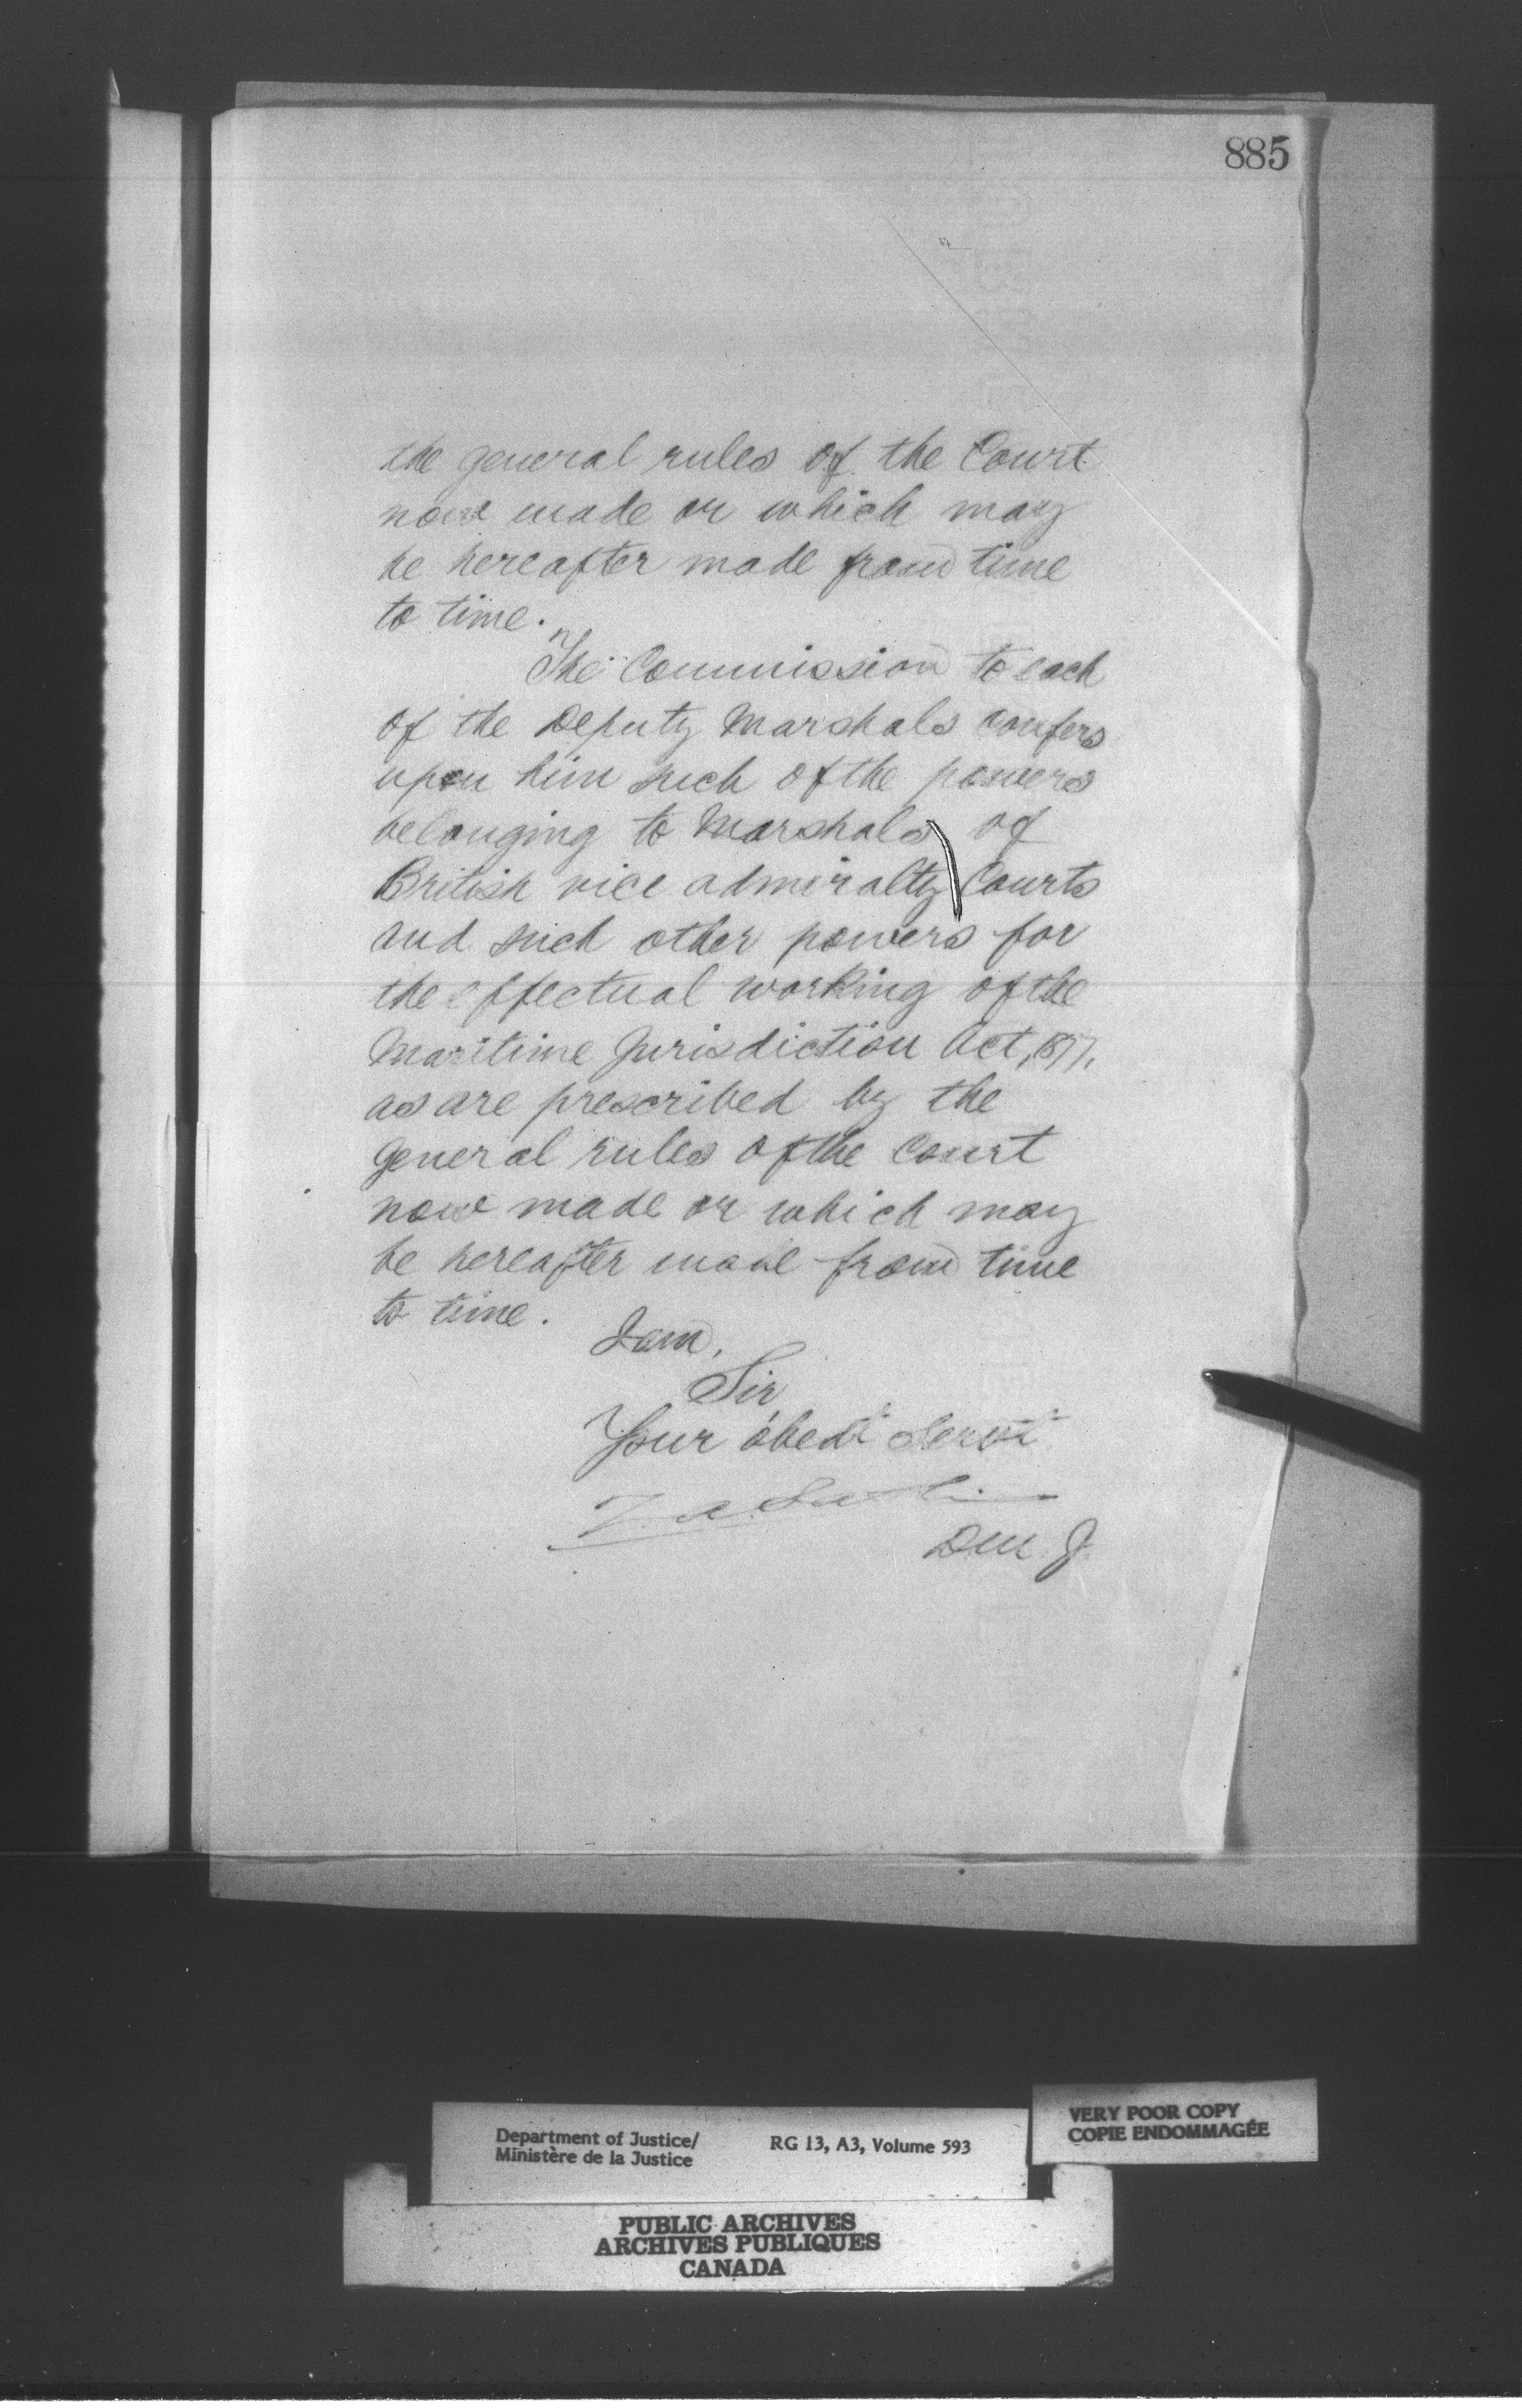 885
the general rules of the Court
now made or which may
be hereafter made from time
to time.
The Commission to each
of the Deputy Marshals confers
upon him such of the powers
belonging to Marshals of
British vice admiralty Courts
and such other powers for
the effectual working of the
Maritime Jurisdiction Act, 1877,
as are prescribed by the
general rules of the Court
now made or which may
be hereafter made from time
to time.
I am,
Sir,
Your obedt Servt
Z. A. Lash
D M J
Department of Justice/
Ministère de la Justice
RG 13, A3, Volume 593
VERY POOR COPY
COPIE ENDOMMAGÉE
PUBLIC ARCHIVES
ARCHIVES PUBLIQUES
CANADA